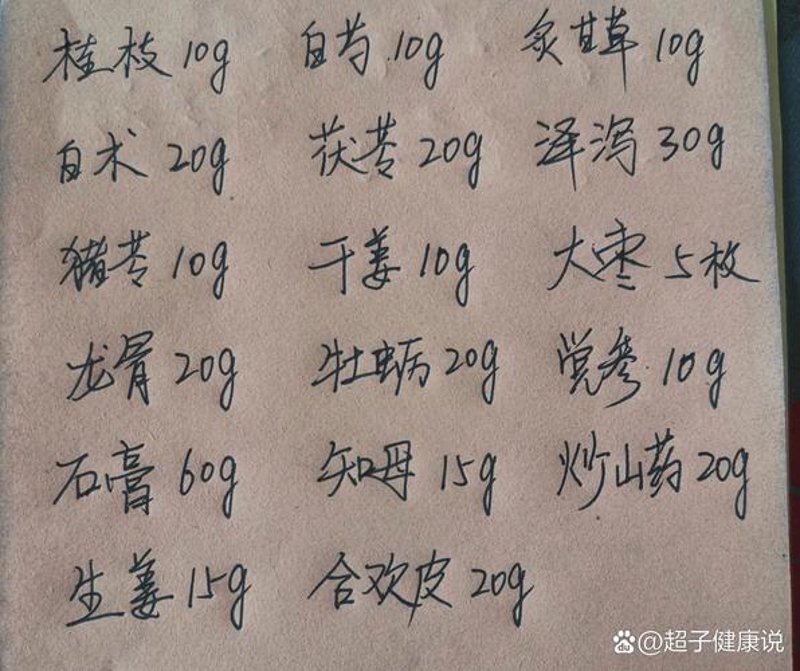 桂枝10g 白芍10g 炙甘草10g
白术20g 茯苓20g 泽泻30g
猪苓10g 干姜10g 大枣5枚
龙骨20g 牡蛎20g 党参10g
石膏60g 知母15g 炒山药20g
生姜15g 合欢皮20g
@超子健康说